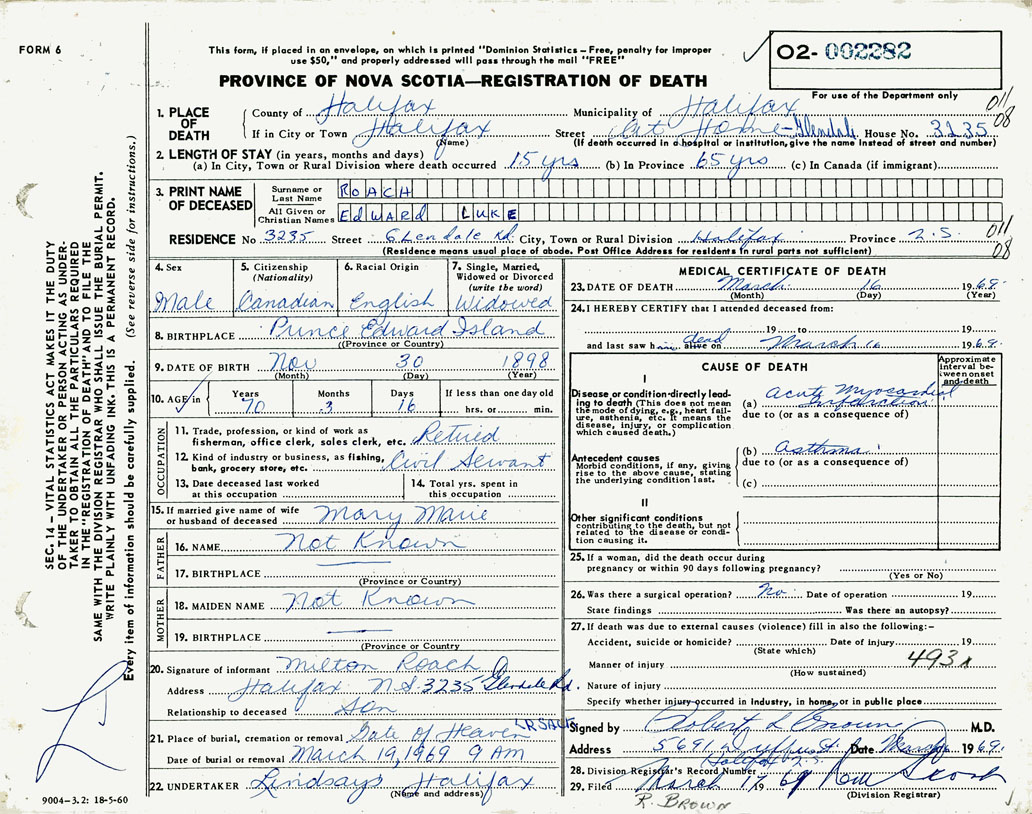 FORM 6
This form, if placed in an envelope, on which is printed "Dominion Statistics – Free, penalty for improper
use $50," and properly addressed will pass through the mail "FREE"
PROVINCE OF NOVA SCOTIA—REGISTRATION OF DEATH
02- 002282
For use of the Department only
011
08
1. PLACE OF DEATH
County of Halifax Municipality of Halifax
If in City or Town Halifax Street At Home - Glendale House No. 3235
(Name) (If death occurred in a hospital or institution, give the name instead of street and number)
2. LENGTH OF STAY (in years, months and days)
(a) In City, Town or Rural Division where death occurred 15 yrs (b) In Province 65 yrs (c) In Canada (if immigrant)
3. PRINT NAME OF DECEASED
Surname or Last Name ROACH
All Given or Christian Names EdWARd LUKE
RESIDENCE No 3235 Street Glendale Rd. City, Town or Rural Division Halifax Province N.S.
(Residence means usual place of abode. Post Office Address for residents in rural parts not sufficient)
011
08
4. Sex
Male
5. Citizenship (Nationality)
Canadian
6. Racial Origin
English
7. Single, Married, Widowed or Divorced (write the word)
Widowed
8. BIRTHPLACE Prince Edward Island
(Province or Country)
9. DATE OF BIRTH Nov 30 1898
(Month) (Day) (Year)
10. AGE in Years Months Days If less than one day old
70 3 16 hrs. or min.
OCCUPATION
11. Trade, profession, or kind of work as
fisherman, office clerk, sales clerk, etc. Retired
12. Kind of industry or business, as fishing,
bank, grocery store, etc. Civil Servant
13. Date deceased last worked
at this occupation
14. Total yrs. spent in
this occupation
15. If married give name of wife
or husband of deceased Mary Marie
FATHER
16. NAME Not Known
17. BIRTHPLACE
(Province or Country)
MOTHER
18. MAIDEN NAME Not Known
19. BIRTHPLACE
(Province or Country)
20. Signature of informant Milton Roach
Address Halifax N.S. 3235 Glendale Rd.
Relationship to deceased Son
21. Place of burial, cremation or removal Gate of Heaven
Date of burial or removal March 19, 1969 9 AM
22. UNDERTAKER Lindsays Halifax
(Name and address)
MEDICAL CERTIFICATE OF DEATH
23. DATE OF DEATH March 16 1969
(Month) (Day) (Year)
24. I HEREBY CERTIFY that I attended deceased from:
19 to 19
and last saw him alive on dead March 16 1969.
CAUSE OF DEATH
Approximate interval between onset and death
I
Disease or condition directly leading to death (This does not mean
the mode of dying, e.g., heart failure, asthenia, etc. It means the
disease, injury, or complication
which caused death.)
(a) Acute Myocardial
Infarction
due to (or as a consequence of)
Antecedent causes
Morbid conditions, if any, giving
rise to the above cause, stating
the underlying condition last.
(b) Asthma
due to (or as a consequence of)
(c)
II
Other significant conditions
contributing to the death, but not
related to the disease or condition causing it.
25. If a woman, did the death occur during
pregnancy or within 90 days following pregnancy?
(Yes or No)
26. Was there a surgical operation? No. Date of operation 19
State findings Was there an autopsy?
27. If death was due to external causes (violence) fill in also the following:–
Accident, suicide or homicide? Date of injury 19
(State which)
Manner of injury 493x
(How sustained)
Nature of injury
Specify whether injury occurred in industry, in home, or in public place
Signed by Robert L. M.D.
Address 5691 St. Date March 1969.
Halifax N.S.
28. Division Registrar's Record Number
29. Filed March 17 1969
(Division Registrar)
R. BROWN
SEC. 14 – VITAL STATISTICS ACT MAKES IT THE DUTY
OF THE UNDERTAKER OR PERSON ACTING AS UNDERTAKER TO OBTAIN ALL THE PARTICULARS REQUIRED
IN THE "REGISTRATION OF DEATH" AND TO FILE THE
SAME WITH THE DIVISION REGISTRAR WHO SHALL ISSUE THE BURIAL PERMIT.
WRITE PLAINLY WITH UNFADING INK. THIS IS A PERMANENT RECORD.
Every item of information should be carefully supplied. (See reverse side for instructions.)
9004–3.2: 18-5-60